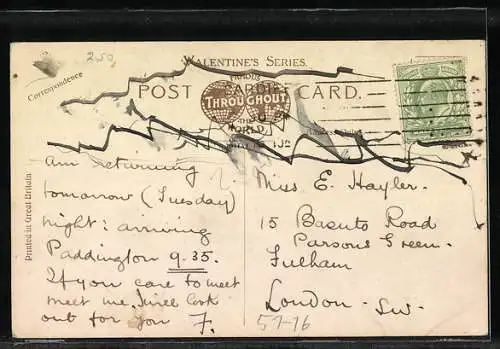 250
VALENTINE'S SERIES.
Correspondence
POST CARD.
FAMOUS
THROUGHOUT
THE
WORLD
CARDIFF
Printed in Great Britain
am returning
tomorrow (Tuesday)
night: arriving
Paddington 9.35.
If you care to meet
meet me, I will look
out for you F.
Miss E. Hayler.
15 Basuto Road
Parsons Green.
Fulham
London - SW.
57-76